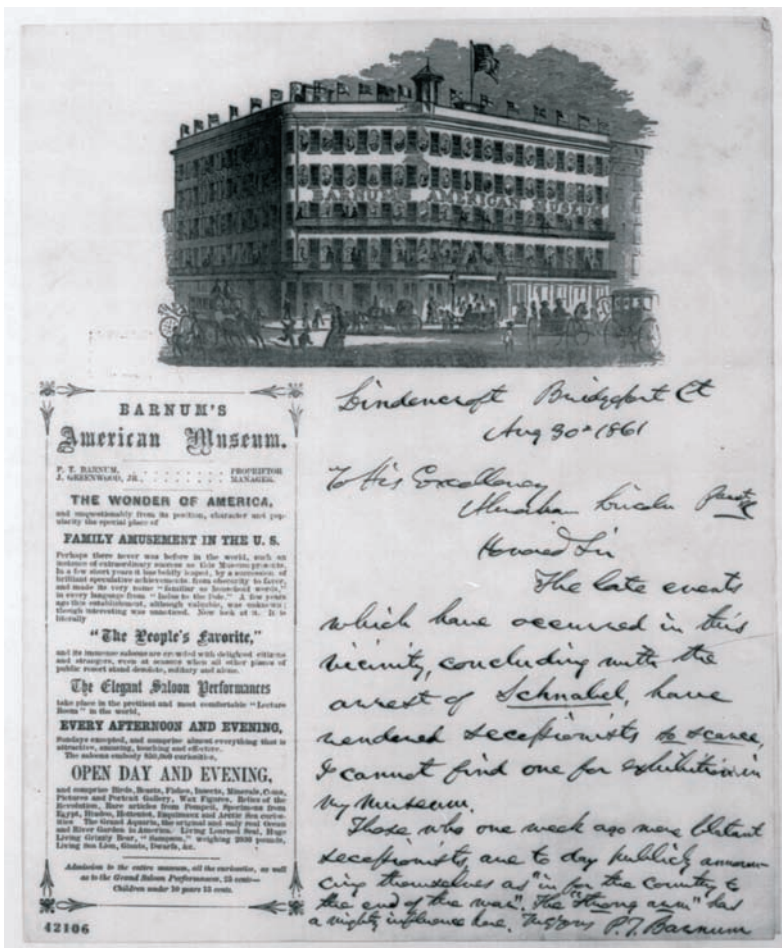 BARNUM'S AMERICAN MUSEUM
BARNUM'S
American Museum.
P. T. BARNUM, . . . . . . . . . . PROPRIETOR
J. GREENWOOD, JR., . . . . . . . . MANAGER.
THE WONDER OF AMERICA,
and unquestionably from its position, character and pop-
ularity the special place of
FAMILY AMUSEMENT IN THE U. S.
Perhaps there never was before in the world, such an
instance of extraordinary success as this Museum presents.
In a few short years it has boldly leaped, by a succession of
brilliant speculative achievements, from obscurity to favor,
and made its very name "familiar as household words,"
in every language from "Indus to the Pole." A few years
ago this establishment, although valuable, was unknown;
though interesting was unnoticed. Now look at it. It is
literally
"The People's Favorite,"
and its immense saloons are crowded with delighted citizens
and strangers, even at seasons when all other places of
public resort stand desolate, solitary and alone.
The Elegant Saloon Performances
take place in the prettiest and most comfortable "Lecture
Room" in the world,
EVERY AFTERNOON AND EVENING,
Sundays excepted, and comprise almost everything that is
attractive, amusing, touching and effective.
The saloons embody 850,000 curiosities,
OPEN DAY AND EVENING,
and comprise Birds, Beasts, Fishes, Insects, Minerals, Coins,
Pictures and Portrait Gallery, Wax Figures, Relics of the
Revolution, Rare articles from Pompeii, Specimens from
Egypt, Hindoo, Hottentot, Esquimaux and Arctic Sea curios-
ities The Grand Aquaria, the original and only real Ocean
and River Garden in America. Living Learned Seal, Huge
Living Grizzly Bear, "Sampson," weighing 2000 pounds,
Living Sea Lion, Giants, Dwarfs, &c.
Admission to the entire museum, all the curiosities, as well
as to the Grand Saloon Performances, 25 cents—
Children under 10 years 15 cents.
42106
Lindencroft Bridgeport Ct
Aug 30 1861
To His Excellency
Abraham Lincoln Presdt
Honored Sir
The late events
which have occurred in this
vicinity, concluding with the
arrest of Schnabel, have
rendered secessionists so scarce,
I cannot find one for exhibition in
my museum.
Those who one week ago were blatant
secessionists are to day publicly announ-
cing themselves as "in for the country to
the end of the war". The "strong arm" has
a mighty influence here. P. T. Barnum